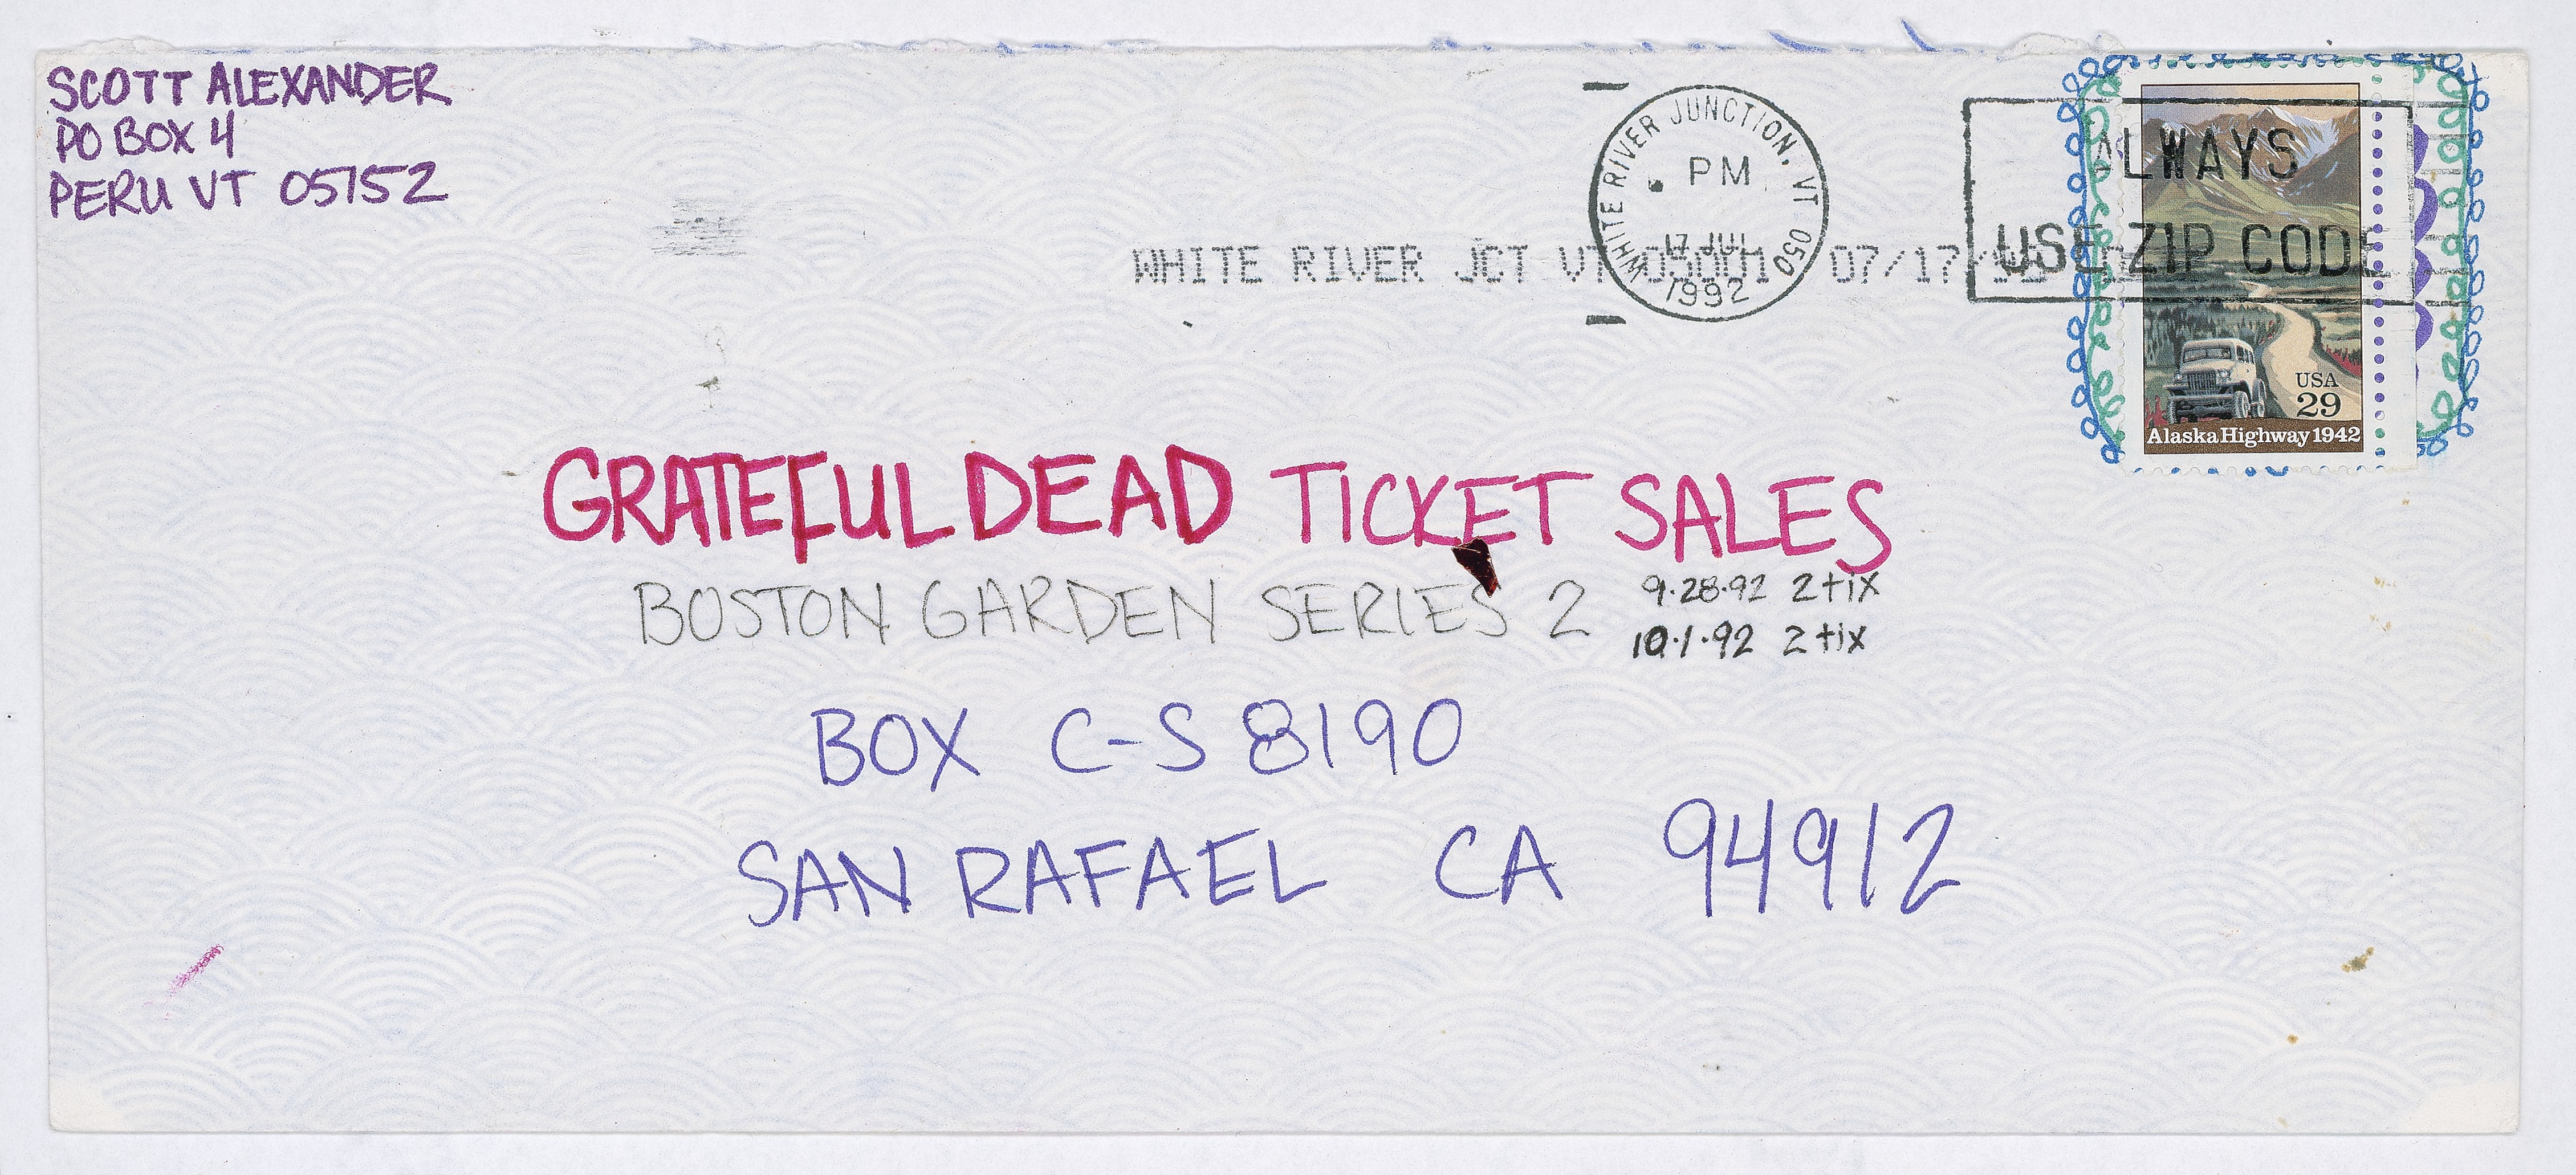 SCOTT ALEXANDER
PO BOX 4
PERU VT 05152
WHITE RIVER JUNCTION, VT 050
PM
17 JUL
1992
WHITE RIVER JCT VT 05001 07/17/92
ALWAYS
USE ZIP CODE
USA
29
Alaska Highway 1942
GRATEFUL DEAD TICKET SALES
BOSTON GARDEN SERIES 2
9.28.92 2 tix
10.1.92 2 tix
BOX C-S 8190
SAN RAFAEL CA 94912